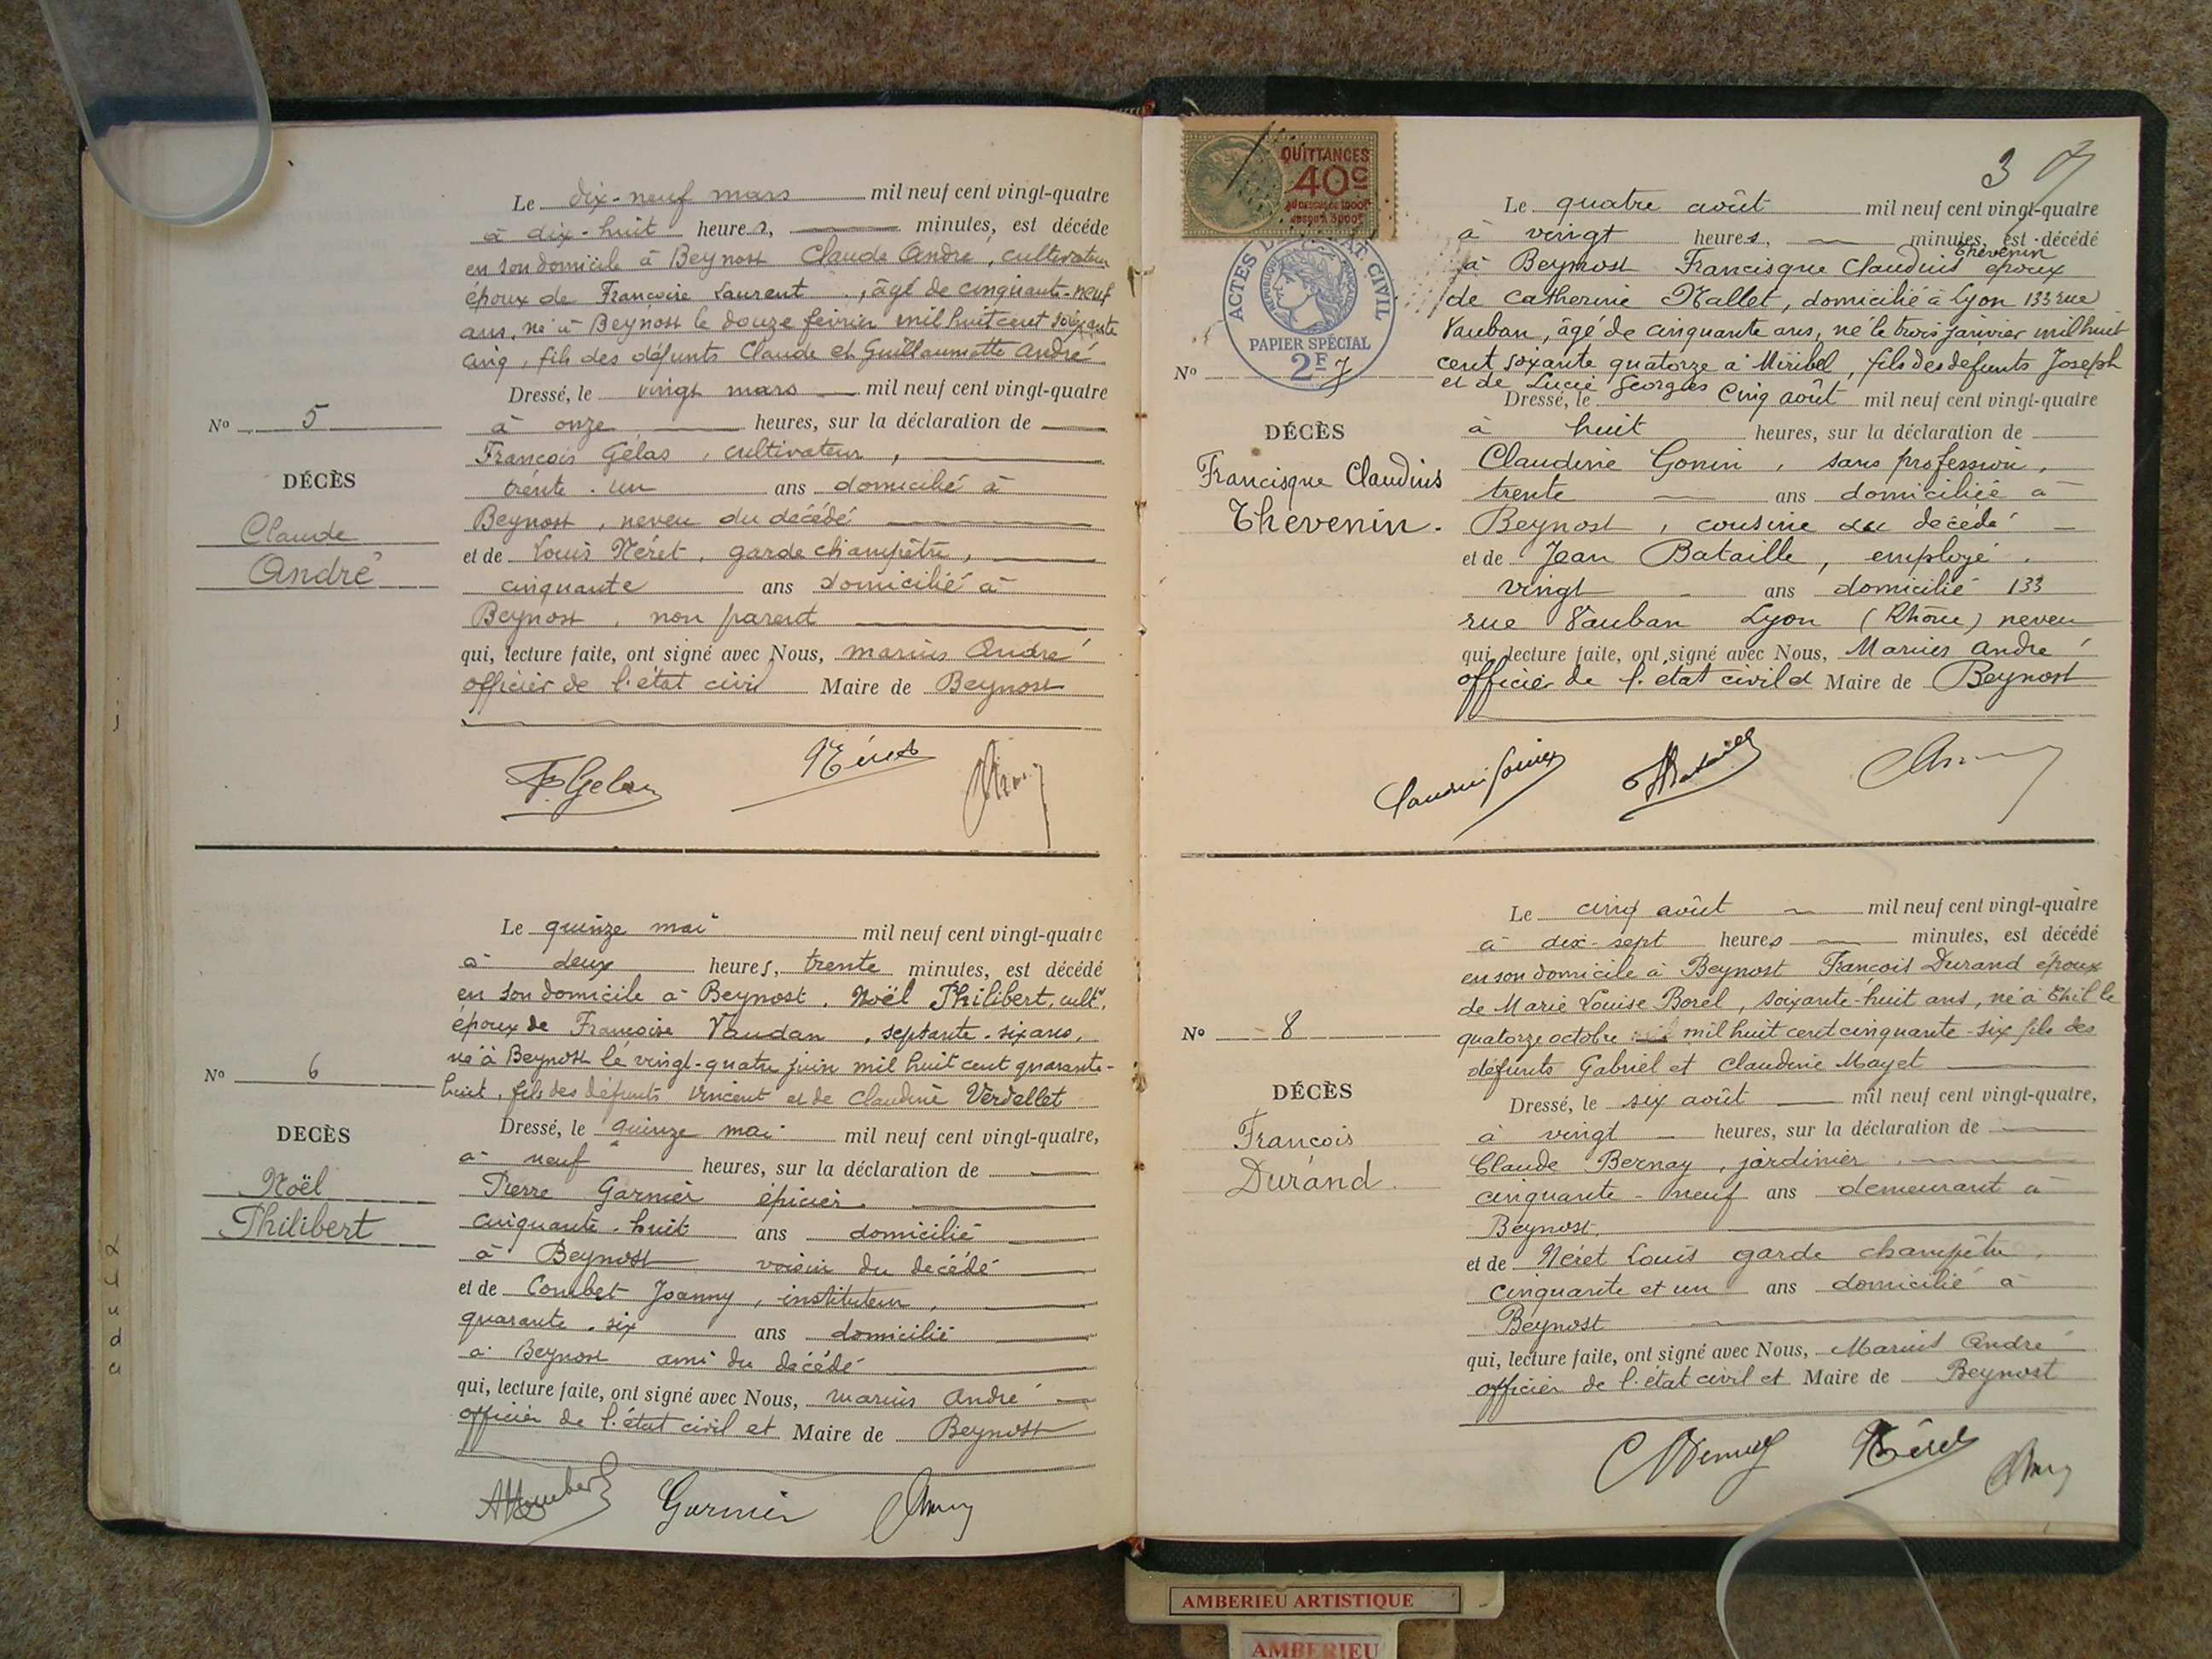 Le dix-neuf mars mil neuf cent vingt-quatre
à dix-huit heures, minutes, est décédé
en son domicile à Beynost Claude André, cultivateur
époux de Francoise Laurent, âgé de cinquante-neuf
ans, né à Beynost le douze février mil huit cent soixante
cinq, fils des défunts Claude et Guillaumette André
Dressé, le vingt mars mil neuf cent vingt-quatre
à onze heures, sur la déclaration de
François Gélas, cultivateur,
trente-un ans domicilié à
Beynost, neveu du décédé
et de Louis Néret, garde champêtre,
cinquante ans domicilié à
Beynost, non parent
qui, lecture faite, ont signé avec Nous, Marius André
officier de l'état civil Maire de Beynost
Nº 5
DÉCÈS
Claude
André
F. Gelas Néret
Le quinze mai mil neuf cent vingt-quatre
à deux heures, trente minutes, est décédé
en son domicile à Beynost, Noël Philibert, cultr,
époux de Francoise Vaudan, septante-six ans,
né à Beynost le vingt-quatre juin mil huit cent quarante-
huit, fils des défunts Vincent et de Claudine Verdellet
Dressé, le quinze mai mil neuf cent vingt-quatre,
à neuf heures, sur la déclaration de
Pierre Garnier épicier
cinquante-huit ans domicilié
à Beynost voisin du décédé
et de Combet Joanny, instituteur,
quarante-six ans domicilié
à Beynost ami du décédé
qui, lecture faite, ont signé avec Nous, Marius André
officier de l'état civil et Maire de Beynost
Nº 6
DECÈS
Noël
Philibert
Garnier
QUITTANCES
40c
ACTES DE L'ÉTAT CIVIL
RÉPUBLIQUE
PAPIER SPÉCIAL
2F
3
Le quatre août mil neuf cent vingt-quatre
à vingt heures, minutes, est décédé
à Beynost Francisque Claudius Thévenin époux
de Catherine Mallet, domicilié à Lyon 133 rue
Vauban, âgé de cinquante ans, né le trois janvier mil huit
cent soixante quatorze à Miribel, fils des défunts Joseph
et de Lucie Georges
Dressé, le cinq août mil neuf cent vingt-quatre
à huit heures, sur la déclaration de
Claudine Gonin, sans profession,
trente ans domiciliée à
Beynost, cousine du décédé
et de Jean Bataille, employé,
vingt ans domicilié 133
rue Vauban Lyon (Rhône) neveu
qui, lecture faite, ont signé avec Nous, Marius André
officier de l'état civil et Maire de Beynost
Nº 7
DÉCÈS
Francisque Claudius
Thevenin.
Le cinq août mil neuf cent vingt-quatre
à dix-sept heures minutes, est décédé
en son domicile à Beynost François Durand époux
de Marie Louise Borel, soixante-huit ans, né à Thil le
quatorze octobre mil huit cent cinquante-six fils des
défunts Gabriel et Claudine Mayet
Dressé, le six août mil neuf cent vingt-quatre,
à vingt heures, sur la déclaration de
Claude Bernay, jardinier,
cinquante-neuf ans demeurant à
Beynost,
et de Néret Louis garde champêtre,
cinquante et un ans domicilié à
Beynost
qui, lecture faite, ont signé avec Nous, Marius André
officier de l'état civil et Maire de Beynost
Nº 8
DÉCÈS
François
Durand.
Néret
AMBERIEU ARTISTIQUE
AMBERIEU